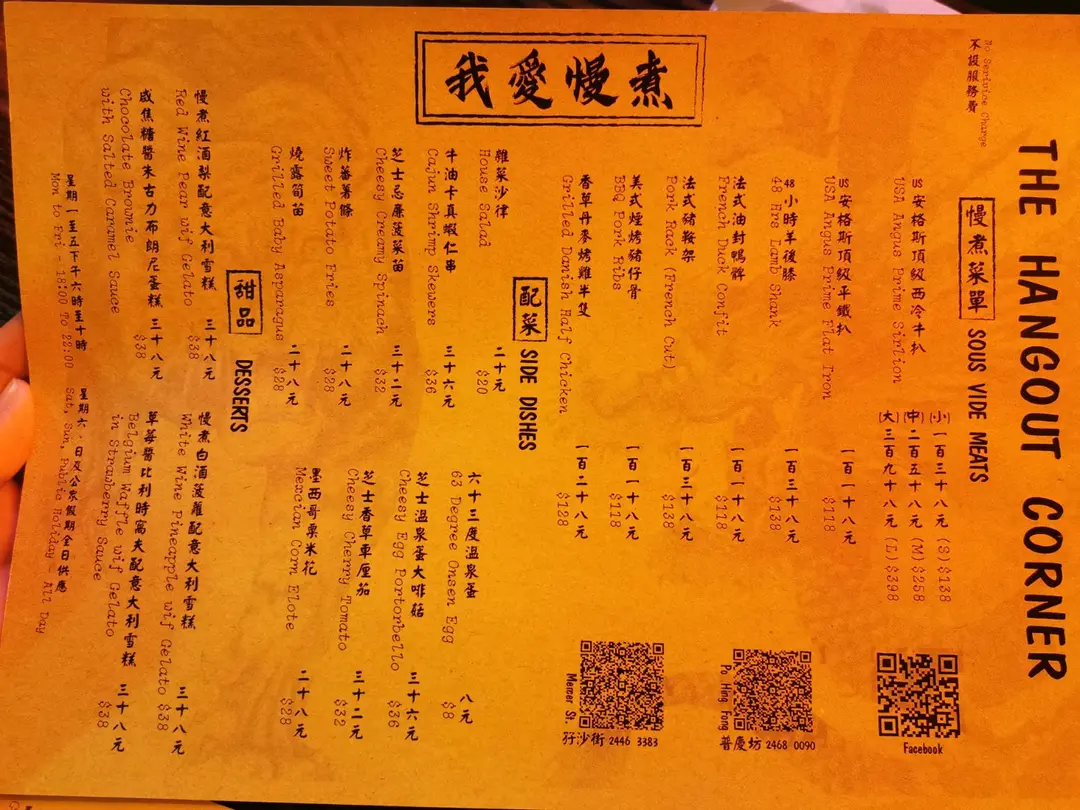 我愛慢煮
THE HANGOUT CORNER
No Serivice Charge
不設服務費
慢煮菜單 SOUS VIDE MEATS
US安格斯頂級西冷牛扒
USA Angus Prime Sirlion
(小) 一百三十八元 (S)$138
(中) 二百五十八元 (M)$258
(大) 三百九十八元 (L)$398
US安格斯頂級平鐵扒 一百一十八元
USA Angus Prime Flat Iron $118
48小時羊後膝 一百三十八元
48 Hrs Lamb Shank $138
法式油封鴨髀 一百一十八元
French Duck Confit $118
法式豬鞍架 一百三十八元
Pork Rack (French Cut) $138
美式煙烤豬仔骨 一百一十八元
BBQ Pork Ribs $118
香草丹麥烤雞半隻 一百二十八元
Grilled Danish Half Chicken $128
Facebook
Po Hing Fong
普慶坊 2468 0090
Mercer St.
孖沙街 2446 3383
配菜 SIDE DISHES
雜菜沙律 二十元
House Salad $20
牛油卡真蝦仁串 三十六元
Cajun Shrimp Skewers $36
芝士忌廉菠菜苗 三十二元
Cheesy Creamy Spinach $32
炸蕃薯條 二十八元
Sweet Potato Fries $28
燒露筍苗 二十八元
Grilled Baby Asparagus $28
六十三度溫泉蛋 八元
63 Degree Onsen Egg $8
芝士溫泉蛋大啡菇 三十六元
Cheesy Egg Portorbello $36
芝士香草車厘茄 三十二元
Cheesy Cherry Tomato $32
墨西哥栗米花 二十八元
Mexcian Corn Elote $28
甜品 DESSERTS
慢煮紅酒梨配意大利雪糕 三十八元
Red Wine Pear wif Gelato $38
咸焦糖醬朱古力布朗尼蛋糕 三十八元
Chocolate Brownie $38
with Salted Caramel Sauce
慢煮白酒菠蘿配意大利雪糕 三十八元
White Wine Pineapple wif Gelato $38
草莓醬比利時窩夫配意大利雪糕 三十八元
Belgium Waffle wif Gelato $38
in Strawberry Sauce
星期一至五下午六時至十時 星期六、日及公眾假期全日供應
Mon to Fri - 18:00 To 22:00 Sat, Sun, Public Holiday - All Day